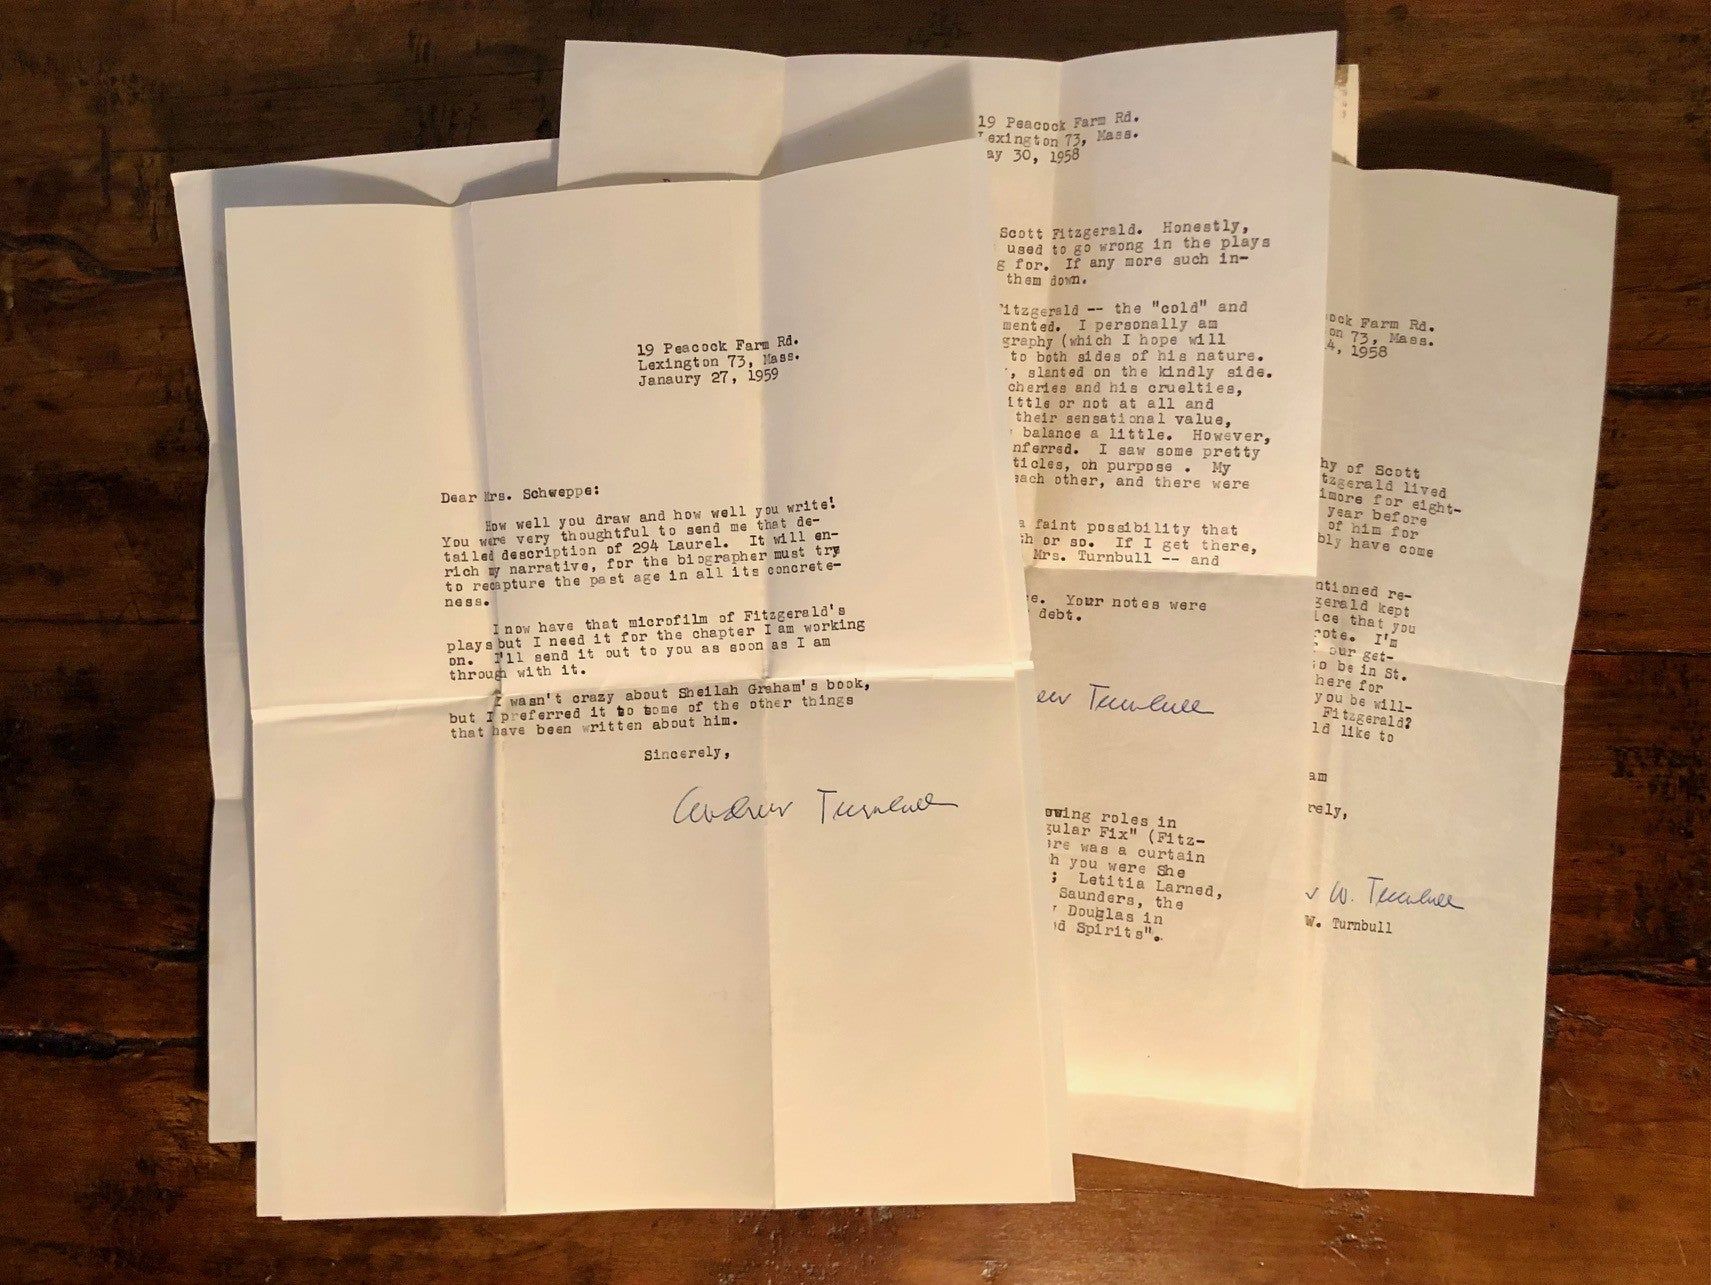 19 Peacock Farm Rd.
Lexington 73, Mass.
Janaury 27, 1959
Dear Mrs. Schweppe:
How well you draw and how well you write!
You were very thoughtful to send me that de-
tailed description of 294 Laurel. It will en-
rich my narrative, for the biographer must try
to recapture the past age in all its concrete-
ness.
I now have that microfilm of Fitzgerald's
plays but I need it for the chapter I am working
on. I'll send it out to you as soon as I am
through with it.
I wasn't crazy about Sheilah Graham's book,
but I preferred it to some of the other things
that have been written about him.
Sincerely,
Andrew Turnbull
19 Peacock Farm Rd.
exington 73, Mass.
ay 30, 1958
Scott Fitzgerald. Honestly,
used to go wrong in the plays
g for. If any more such in-
them down.
itzgerald -- the "cold" and
mented. I personally am
graphy (which I hope will
to both sides of his nature.
, slanted on the kindly side.
cheries and his cruelties,
ittle or not at all and
their sensational value,
balance a little. However,
nferred. I saw some pretty
ticles, oh purpose . My
each other, and there were
a faint possibility that
th or so. If I get there,
Mrs. Turnbull -- and
e. Your notes were
debt.
ew Turnbull
owing roles in
gular Fix" (Fitz-
ere was a curtain
h you were She
; Letitia Larned,
Saunders, the
Douglas in
d Spirits".
ock Farm Rd.
on 73, Mass.
4, 1958
hy of Scott
tzgerald lived
imore for eight-
year before
of him for
bly have come
ntioned re-
gerald kept
ice that you
rote. I'm
our get-
o be in St.
here for
you be will-
Fitzgerald?
ld like to
am
rely,
W. Turnbull
W. Turnbull